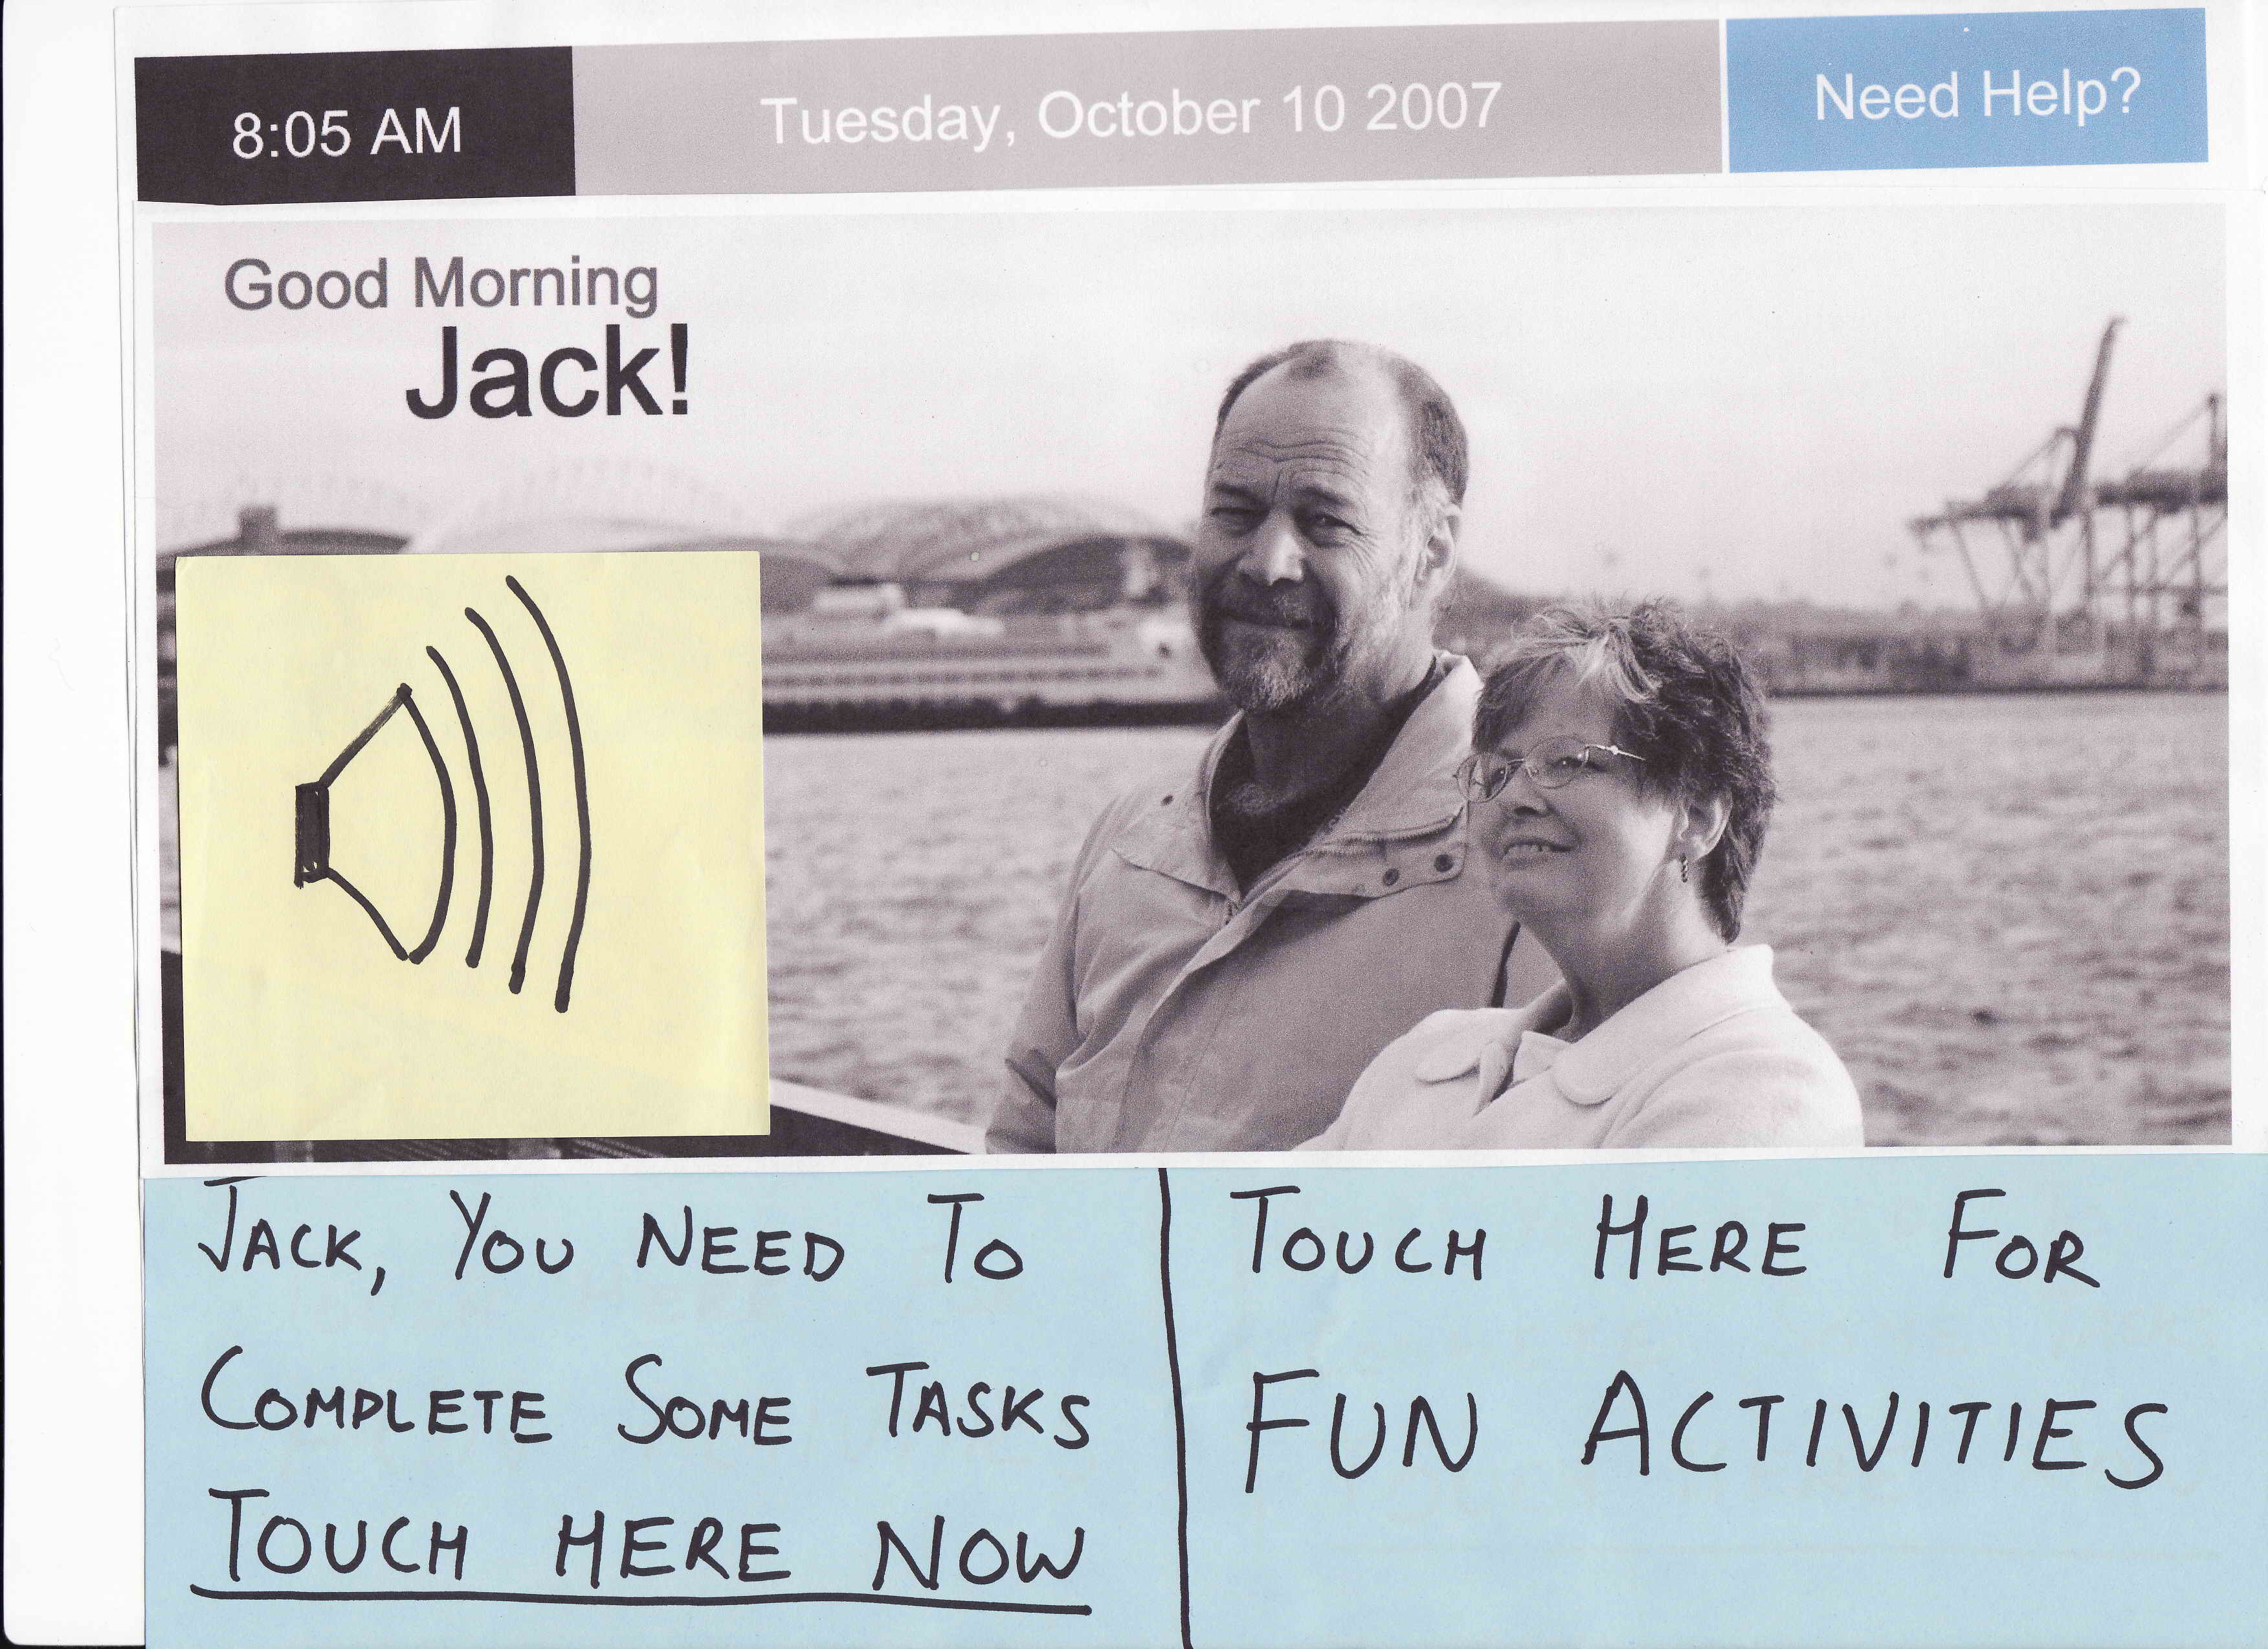 8:05 AM
Tuesday, October 10 2007
Need Help?
Good Morning
Jack!
JACK, YOU NEED TO
COMPLETE SOME TASKS
TOUCH HERE NOW
TOUCH HERE FOR
FUN ACTIVITIES